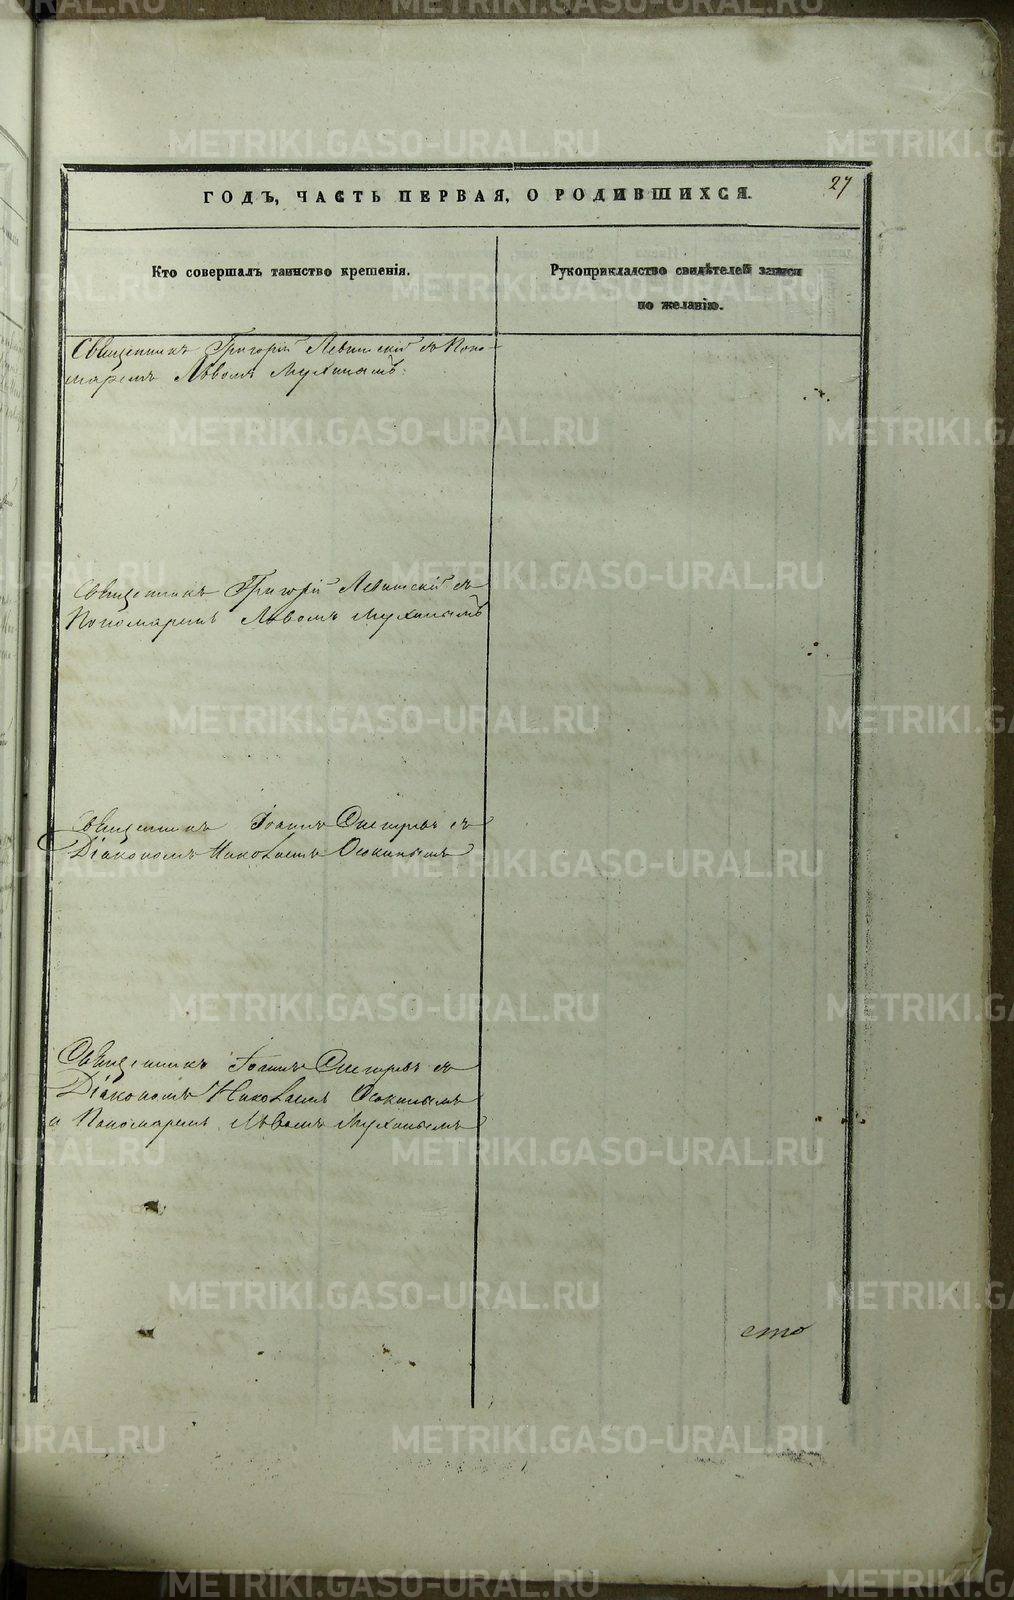 27
ГОДЪ, ЧАСТЬ ПЕРВАЯ, О РОДИВШИХСЯ.
Кто совершалъ таинство крещенія.
Рукоприкладство свидѣтелей записи
по желанію.
Священникъ Григорій Левитскій съ Поно-
маремъ Львомъ Мухинымъ.
Священникъ Григорій Левитскій съ
Пономаремъ Львомъ Мухинымъ
Священникъ Іоаннъ съ
Діакономъ Николаемъ Осокинымъ
Священникъ Іоаннъ съ
Діакономъ Николаемъ Осокинымъ
и Пономаремъ Львомъ Мухинымъ
сто
METRIKI.GASO-URAL.RU